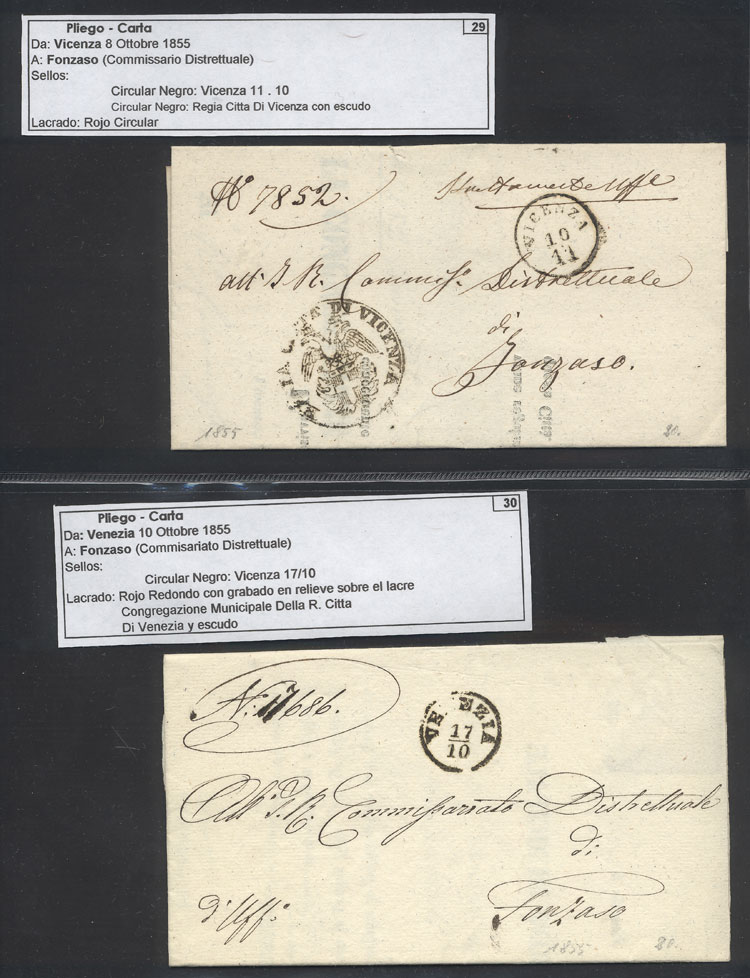 Pliego - Carta
29
Da: Vicenza 8 Ottobre 1855
A: Fonzaso (Commissario Distrettuale)
Sellos:
Circular Negro: Vicenza 11 . 10
Circular Negro: Regia Citta Di Vicenza con escudo
Lacrado: Rojo Circular
No 7852.
VICENZA
10
11
all' I. R. Commisso. Distrettuale
di
Fonzaso.
CITTÀ DI VICENZA
1855
80.
Pliego - Carta
30
Da: Venezia 10 Ottobre 1855
A: Fonzaso (Commisariato Distrettuale)
Sellos:
Circular Negro: Vicenza 17/10
Lacrado: Rojo Redondo con grabado en relieve sobre el lacre
Congregazione Municipale Della R. Citta
Di Venezia y escudo
N: 17686.
VENEZIA
17
10
All' I. R. Commissariato Distrettuale
di
d'Uffo.
Fonzaso
1855.
80.